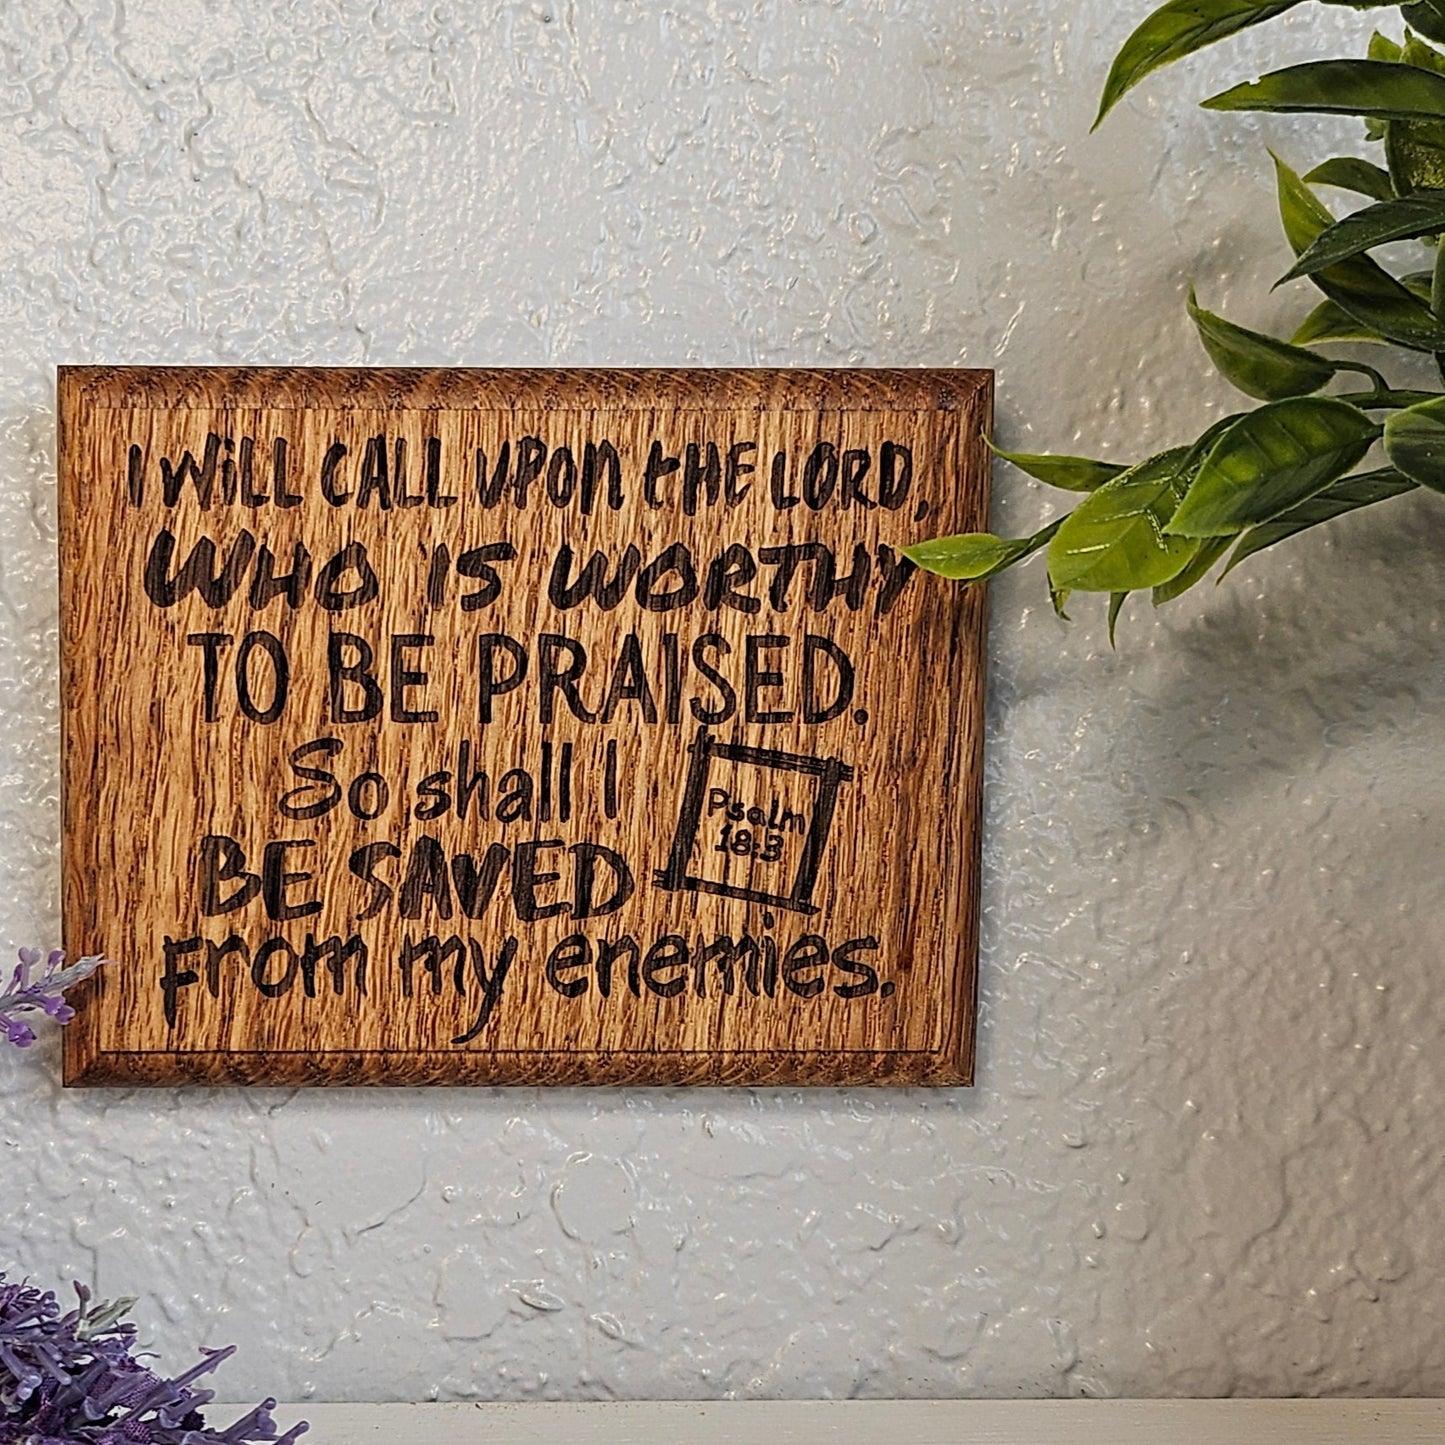 I WiLL CALL UPON tHE LORD,
WHO IS WORTHY
TO BE PRAISED.
So shall I
Psalm
18:3
BE SAVED
From my enemies.